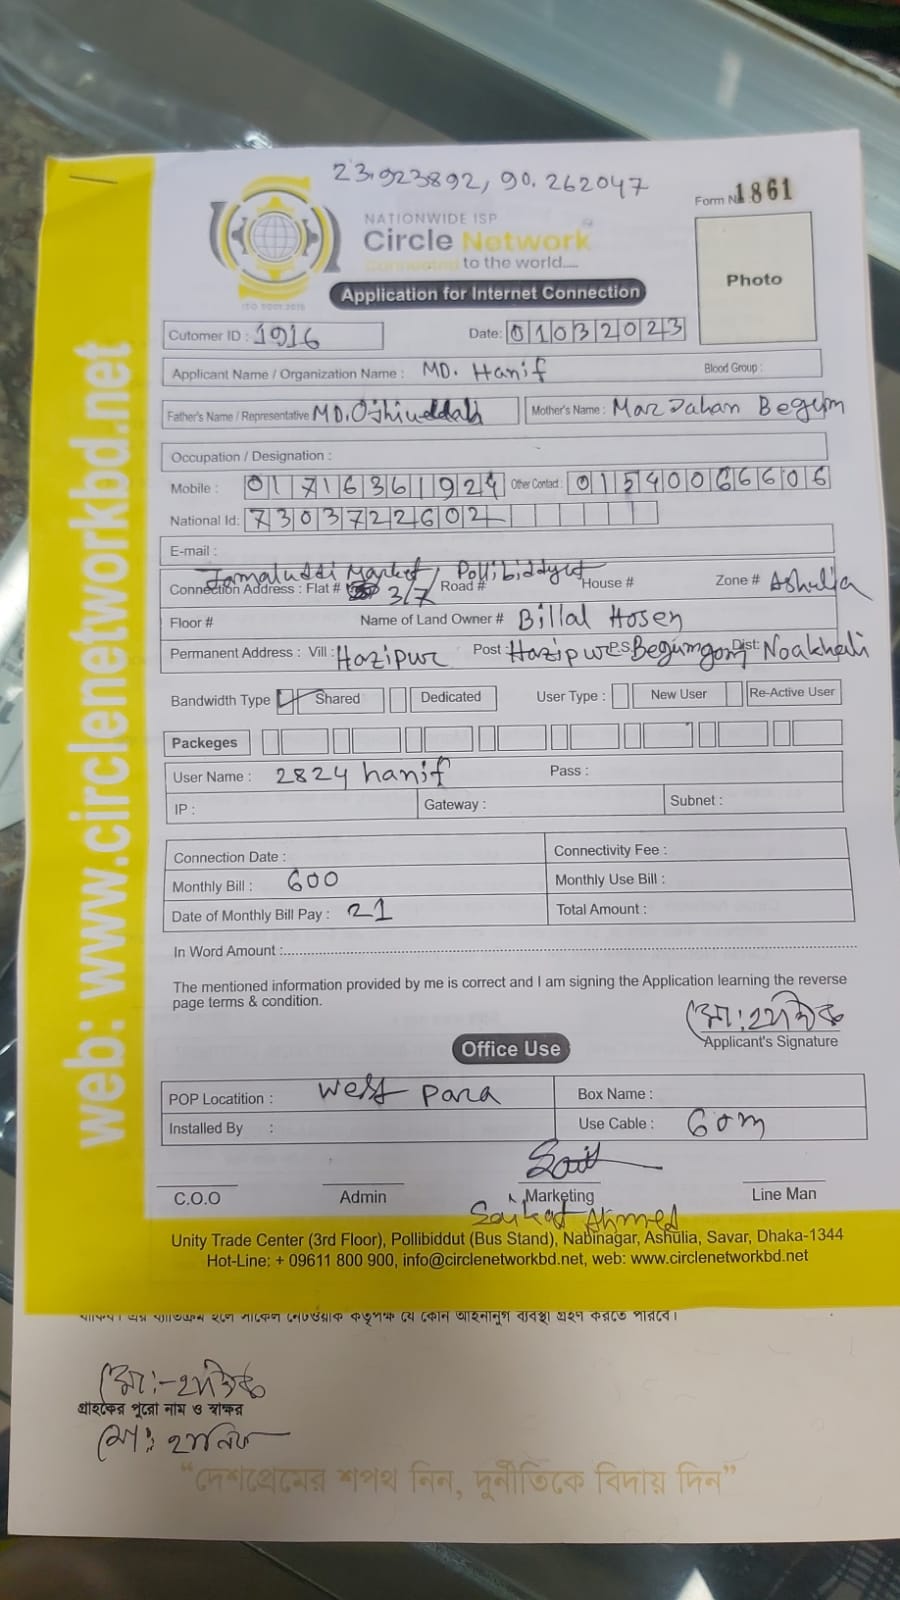 23.923892, 90.262047
Form No 1861
NATIONWIDE ISP
Circle Network
Connected to the world....
ISO 9001:2015
Photo
Application for Internet Connection
Cutomer ID : 1916 Date: 01032023
Applicant Name / Organization Name : MD. Hanif Blood Group :
Father's Name / Representative Mother's Name : Marjahan Begum
Occupation / Designation :
Mobile : 01716361924 Other Contact : 01540066606
National Id: 7303722602
E-mail :
Jamaluddi Market, Pollibiddyut
Connection Address : Flat # 3/7 Road # House # Zone # Ashulia
Floor # Name of Land Owner # Billal Hosen
Permanent Address : Vill : Hazipur Post : Hazipur P.S. Begumgonj Dist: Noakhali
Bandwidth Type Shared Dedicated User Type : New User Re-Active User
Packeges
User Name : 2824 hanif Pass :
IP : Gateway : Subnet :
Connection Date : Connectivity Fee :
Monthly Bill : 600 Monthly Use Bill :
Date of Monthly Bill Pay : 21 Total Amount :
In Word Amount :
The mentioned information provided by me is correct and I am signing the Application learning the reverse
page terms & condition.
মো: হানিফ
Applicant's Signature
Office Use
POP Locatition : West para Box Name :
Installed By : Use Cable : 60m
C.O.O Admin Marketing Line Man
Saikat Ahmed
Unity Trade Center (3rd Floor), Pollibiddut (Bus Stand), Nabinagar, Ashulia, Savar, Dhaka-1344
Hot-Line: + 09611 800 900, info@circlenetworkbd.net, web: www.circlenetworkbd.net
web: www.circlenetworkbd.net
হলে সার্কেল নেটওয়ার্ক কর্তৃপক্ষ যে কোন আইনানুগ ব্যবস্থা গ্রহণ করতে পারবে।
মো:-হানিফ
গ্রাহকের পুরো নাম ও স্বাক্ষর
মো: হানিফ
“দেশপ্রেমের শপথ নিন, দুর্নীতিকে বিদায় দিন”